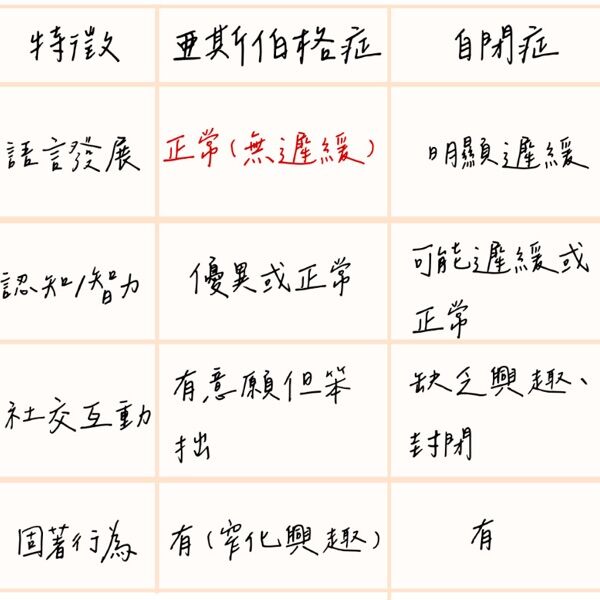 特徵 亞斯伯格症 自閉症
語言發展 正常(無遲緩) 明顯遲緩
認知/智力 優異或正常 可能遲緩或
正常
社交互動 有意願但笨
拙 缺乏興趣、
封閉
固著行為 有(窄化興趣) 有